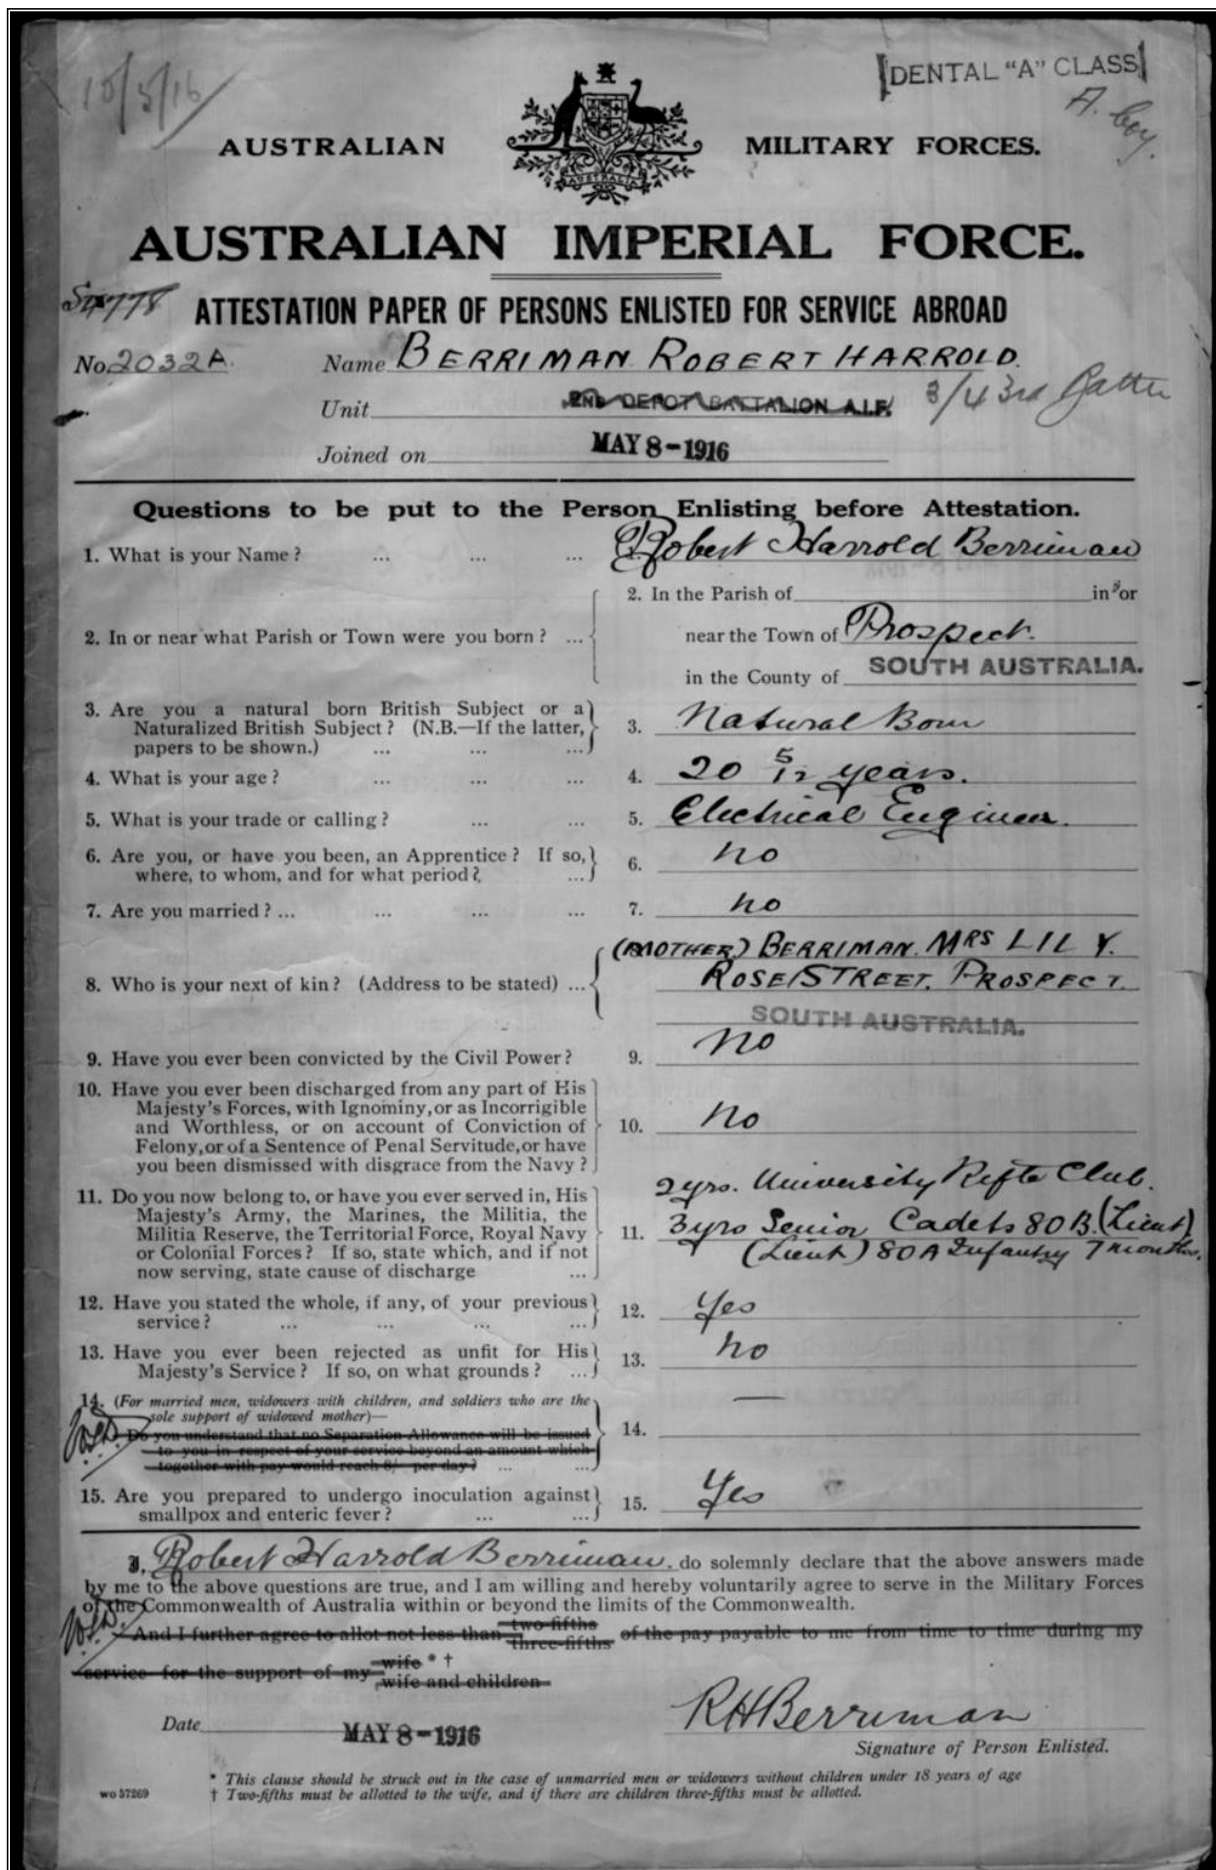 10/5/16
[DENTAL "A" CLASS]
A. Coy.
AUSTRALIAN MILITARY FORCES.
AUSTRALIA
AUSTRALIAN IMPERIAL FORCE.
4778 ATTESTATION PAPER OF PERSONS ENLISTED FOR SERVICE ABROAD
No. 2032A. Name BERRIMAN ROBERT HARROLD.
Unit 2ND DEPOT BATTALION A.I.F. 3/43rd Battn
Joined on MAY 8-1916
Questions to be put to the Person Enlisting before Attestation.
1. What is your Name? ... ... ... Robert Harrold Berriman
2. In or near what Parish or Town were you born? ... 2. In the Parish of in or
near the Town of Prospect.
in the County of SOUTH AUSTRALIA.
3. Are you a natural born British Subject or a
Naturalized British Subject? (N.B.—If the latter,
papers to be shown.) ... ... ... 3. Natural Born
4. What is your age? ... ... ... 4. 20 5/12 years.
5. What is your trade or calling? ... ... 5. Electrical Engineer.
6. Are you, or have you been, an Apprentice? If so,
where, to whom, and for what period? ... 6. no
7. Are you married? ... ... ... ... 7. no
8. Who is your next of kin? (Address to be stated) ... (MOTHER) BERRIMAN. MRS LILY.
ROSE STREET. PROSPECT.
SOUTH AUSTRALIA.
9. Have you ever been convicted by the Civil Power? 9. no
10. Have you ever been discharged from any part of His
Majesty's Forces, with Ignominy, or as Incorrigible
and Worthless, or on account of Conviction of
Felony, or of a Sentence of Penal Servitude, or have
you been dismissed with disgrace from the Navy? 10. no
11. Do you now belong to, or have you ever served in, His
Majesty's Army, the Marines, the Militia, the
Militia Reserve, the Territorial Force, Royal Navy
or Colonial Forces? If so, state which, and if not
now serving, state cause of discharge ...
2 yrs. University Rifle Club.
11. 3 yrs Senior Cadets 80B. (Lieut)
(Lieut) 80A Infantry 7 months.
12. Have you stated the whole, if any, of your previous
service? ... ... ... ... 12. Yes
13. Have you ever been rejected as unfit for His
Majesty's Service? If so, on what grounds? ... 13. no
14. (For married men, widowers with children, and soldiers who are the
sole support of widowed mother)—
Do you understand that no Separation Allowance will be issued
to you in respect of your service beyond an amount which
together with pay would reach 8/- per day? ... ... 14. —
15. Are you prepared to undergo inoculation against
smallpox and enteric fever? ... ... 15. Yes
I, Robert Harrold Berriman, do solemnly declare that the above answers made
by me to the above questions are true, and I am willing and hereby voluntarily agree to serve in the Military Forces
of the Commonwealth of Australia within or beyond the limits of the Commonwealth.
And I further agree to allot not less than two-fifths three-fifths of the pay payable to me from time to time during my
service for the support of my wife * † wife and children
Date MAY 8-1916 RHBerriman
Signature of Person Enlisted.
* This clause should be struck out in the case of unmarried men or widowers without children under 18 years of age
wo 57269 † Two-fifths must be allotted to the wife, and if there are children three-fifths must be allotted.